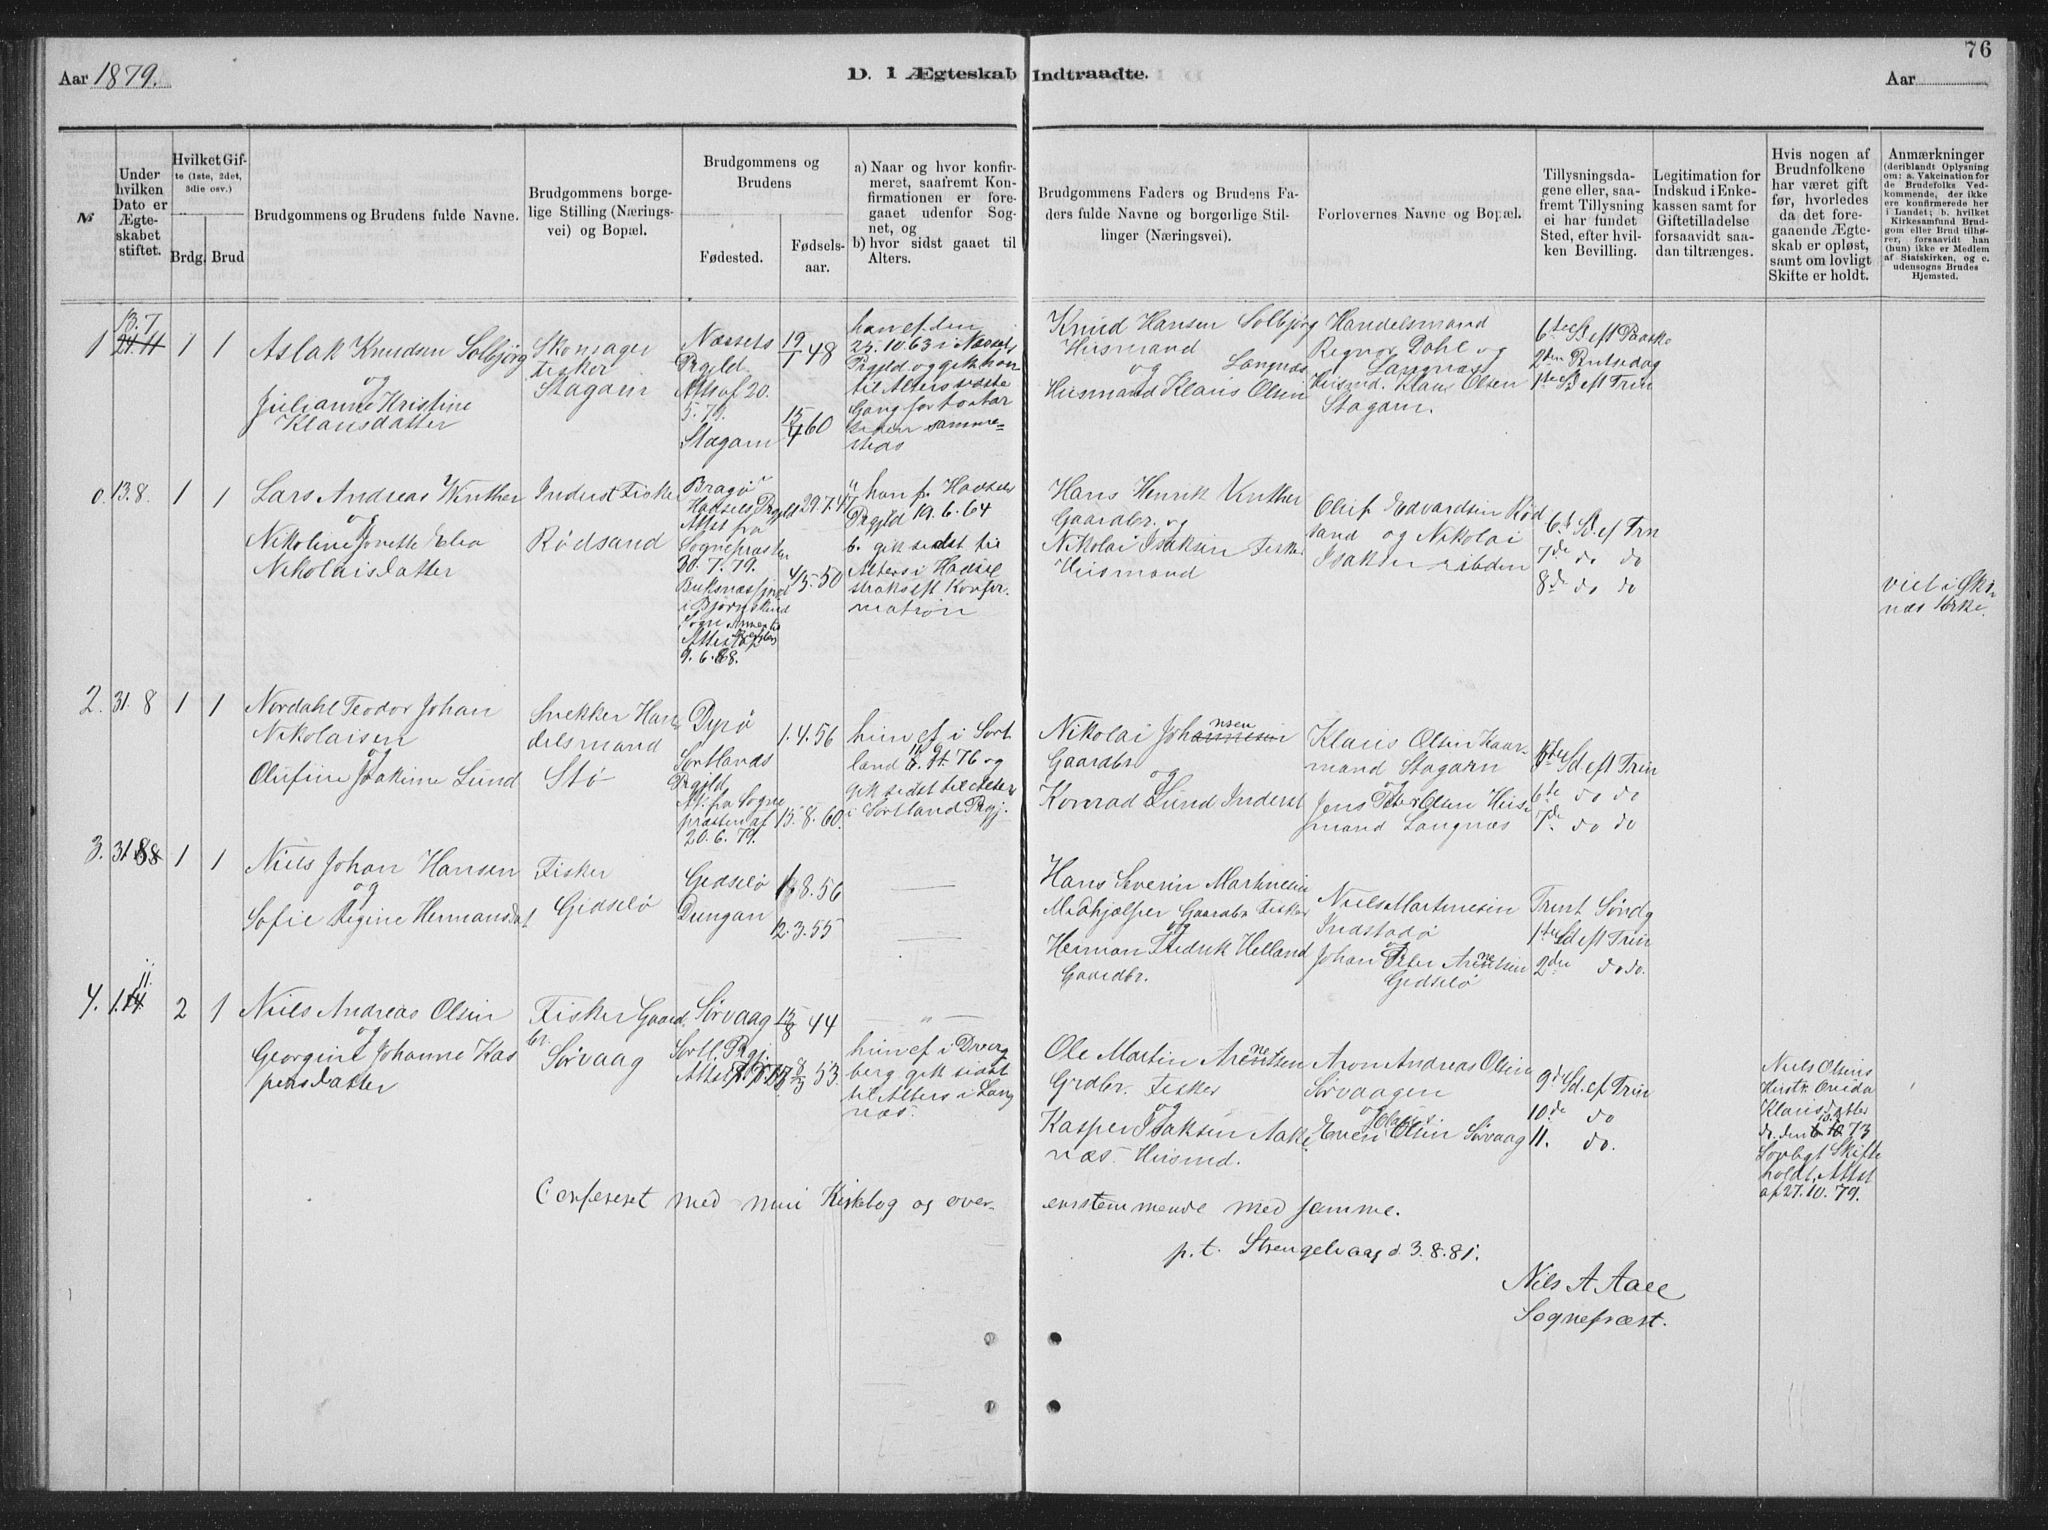 76
Aar 1879.
D. I Ægteskab Indtraadte.
Aar
№
Under hvilken Dato er Ægteskabet stiftet.
Hvilket Gifte (1ste, 2det, 3die osv.)
Brdg. Brud
Brudgommens og Brudens fulde Navne.
Brudgommens borgelige Stilling (Næringsvei) og Bopæl.
Brudgommens og Brudens
Fødested.
Fødselsaar.
a) Naar og hvor konfirmeret, saafremt Konfirmationen er foregaaet udenfor Sognet, og
b) hvor sidst gaaet til Alters.
Brudgommens Faders og Brudens Faders fulde Navne og borgerlige Stillinger (Næringsvei).
Forlovernes Navne og Bopæl.
Tillysningsdagene eller, saafremt Tillysning ei har fundet Sted, efter hvilken Bevilling.
Legitimation for Indskud i Enkekassen samt for Giftetilladelse forsaavidt saadan tiltrænges.
Hvis nogen af Brudnfolkene har været gift før, hvorledes da det foregaaende Ægteskab er opløst, samt om lovligt Skifte er holdt.
Anmærkninger
(deriblandt Oplysning om: a. Vakcination for de Brudefolks Vedkommende, der ikke ere konfirmerede her i Landet; b. hvilket Kirkesamfund Brudgom eller Brud tilhører, forsaavidt han (hun) ikke er Medlem af Statskirken, og c. udensogns Brudes Hjemsted.
1
13.7
1
1
Aslak Knudsen Solbjörg
og
Julianne Kristine
Klausdatter
Skomager
fisker
Stagarn
Næssets
Prgjld.
Atts af 20.
5. 79.
Stagarn
19/1 48
15/4 60
han cf. den
25.10.63 i Næssets
Prgjld og gik han
til Alters sidste
Gang for to Aar
siden samme-
steds
Knud Hansen Solbjörg
Husmand
og Langnæs
Husmand Klaus Olsen
Handelsmand
Regnor Dahl og
Langnæs
Husmd. Klaus Olsen
Stagarn.
6te S eft Paaske
2den Pintsedag
1ste S eft Trin
0. 13.8.
1
1
Lars Andreas Winther
og
Nikoline Jonette Elea
Nikolaisdatter
Inderst Fisker
Rödsand
Bragö
Hadsels Prgjld
Attest fra
Sognepræsten
30.7.79.
Buksnæsfjord
i Bjørnskind
Sogn
9.6.68.
29.7.47
4/5.50
han f. Hadsels
Prgjld 19.6.64
b. gik sidst til
Alters i Hadsel
straks eft Konfir-
mation
Hans Henrik Vinther
Gaardbr. og
Nikolai Isaksen Fisker
Husmand
Oluf Edvardsen Röd
sand og Nikolai
Isaksen ibiden
6te S. ef Trn
7de do do
8d do do
viet i Øks-
næs Kirke.
2. 31 8
1
1
Nordahl Teodor Johan
Nikolaisen
og
Olufine Joakime Lund
Snekker Han-
delsmand
Stø
Dyrö
Sortlands
Prgjld
Att fra Sogne
præsten af
20.6.79.
1.4.56
15.8.60.
hun cf i Sort
land 76 og
gik sidst til Alters
i Sortland Prgj.
Nikolai Johannsen
Gaardbr
og
Konrad Lund Inderst
Klaus Olsen Kaar-
mand Stagarn
og
Jens Peter Olsen Hus-
mand Langnæs
5te Sd eft Trin
6te do do
7de do do
3. 31 8
1
1
Niels Johan Hansen
og
Sofie Regine Hermansdat
Fisker
Gidselö
Gidselö
Dungan
8.56
12.3.55
Hans Severin Martinesen
Medhjælper Gaardbr Fisker
og
Herman Fredrik Helland
Gaardbr.
Niels Martinesen
Indstadö
og
Johan Peter Arentsen
Gidselö
Trint Söndg
1ste Sd eft Trin
2den do do.
4. 1.11
2
1
Niels Andreas Olsen
og
Georgine Johanne Kas
persdatter
Fisker Gaard
br.
Sørvaag
Sørvaag
Sortl. Prgj.
Attst
13/8 44
8/9 53.
hun cf i Dverg
berg gik sidst
til Alters i Lang
næs.
Ole Martin Arentsen
Grdbr. Fisker
og
Kasper Isaksen Aake
næs. Husmd.
Aron Andreas Olsen
Sørvaagen
og
Even Olsen Sørvaag
9d Sd. ef Trin
10de do
11. do.
Niels Olsens
Hustr. Oveida
Klausdatter
do. den 73
Lovligt Skifte
holdt, Attst
af 27.10.79.
Confereret med min Kirkebog og over-
ensstemmende med samme.
p.t. Strengelvaag d. 3.8.81.
Nils A Aall
Sognepræst.